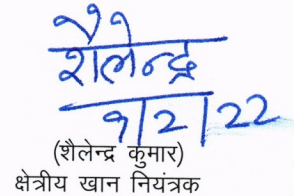 शैलेन्द्र
9/2/22
(शैलेन्द्र कुमार)
क्षेत्रीय खान नियंत्रक